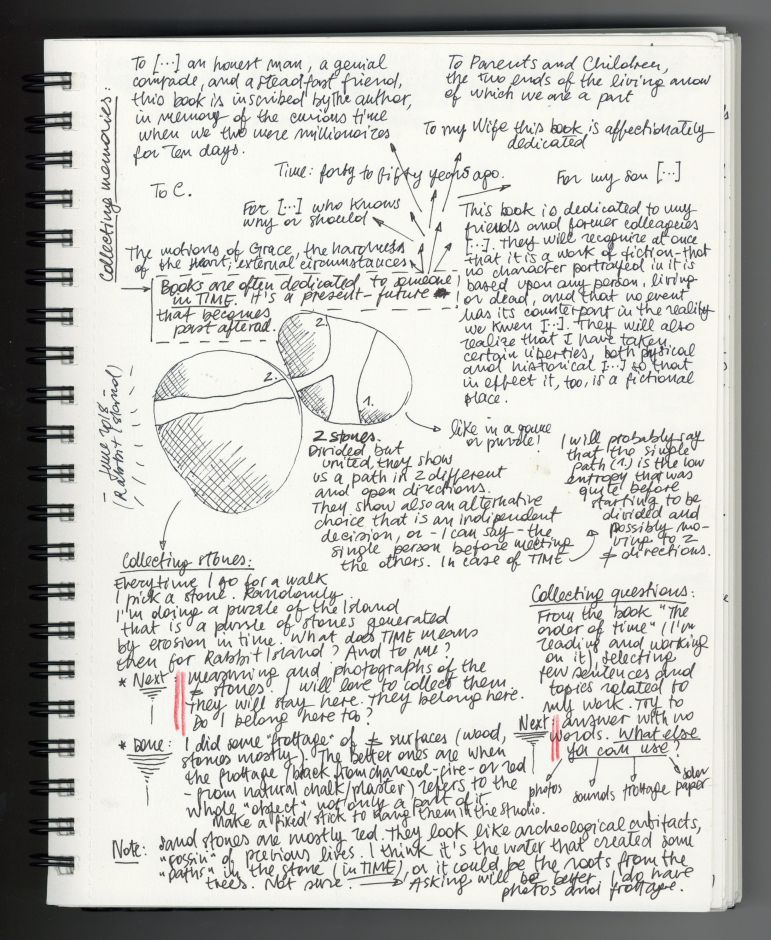 Collecting memories:
To [...] an honest man, a genial
comrade, and a steadfast friend,
this book is inscribed by the author,
in memory of the curious time
when we two were millionaires
for Ten days.
To Parents and Children,
the two ends of the living arrow
of which we are a part
To my Wife this book is affectionately
dedicated
Time: forty to fifty years ago.
To C.
For [...] who knows
why or should
For my son [...]
The motions of Grace, the hardness
of the heart; external circumstances
Books are often dedicated to someone
in TIME. It's a present-future
that becomes
past altered.
This book is dedicated to my
friends and former colleagues
[...]. They will recognize at once
that it is a work of fiction-that
no character portrayed in it is
based upon any person, living
or dead, and that no event
has its counterpart in the reality
we knew [...]. They will also
realize that I have taken
certain liberties, both pysical
and historical [...] so that
in effect it, too, is a fictional
place.
June 2018
(Rabbit Island)
2.
2.
1.
like in a game
or puzzle!
2 stones.
Divided but
united, they show
us a path in 2 different
and open directions.
They show also an alternative
choice that is an indipendent
decision, or - I can say - the
single person before meeting
the others. In case of TIME
I will probably say
that the simple
path (1.) is the low
entropy that was
quite before
starting to be
divided and
possibly mo-
ving to 2
≠ directions.
Collecting stones:
Everytime I go for a walk
I pick a stone. Randomly.
I'm doing a puzzle of the Island
that is a puzzle of stones generated
by erosion in time. What does TIME means
then for Rabbit Island? And to me?
* Next: measuring and photographs of the
≠ stones. I will love to collect them
They will stay here. They belong here.
Do I belong here too?
* Done: I did some "frottage" of ≠ surfaces (wood,
stones mostly). The better ones are when
the frottage (black from charocol-fire- or red
-from natural chalk/plaster) refers to the
whole "object", not only a part of it.
make a fixed stick to hang them in the studio.
Collecting questions:
From the book "The
order of time" (I'm
reading and working
on it), selecting
few sentences and
topics related to
my work. Try to
Next answer with no
words. What else
you can use?
photos
sounds
frottage
solar
paper
Note: sand stones are mostly red. They look like archeological artifacts,
of previous lives. I think it's the water that created some
"paths" in the stone (in TIME), or it could be the roots from the
trees. Not sure. Asking will be better. I do have
photos and frottage.